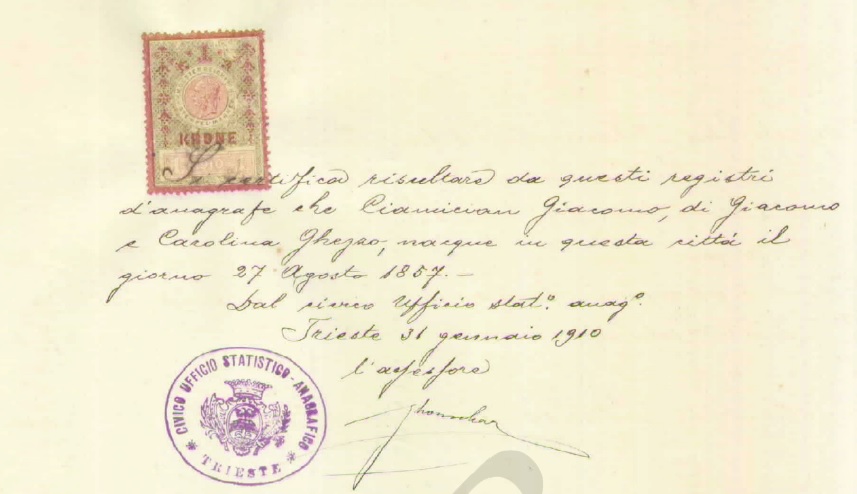 1
KRONE
Si certifica risultare da questi registri
d'anagrafe che Ciamician Giacomo, di Giacomo
e Carolina Ghezzo, nacque in questa città il
giorno 27 Agosto 1857.-
Dal civico Ufficio stat.º anag.º
Trieste 31 gennaio 1910
l'assessore
CIVICO UFFICIO STATISTICO-ANAGRAFICO
TRIESTE